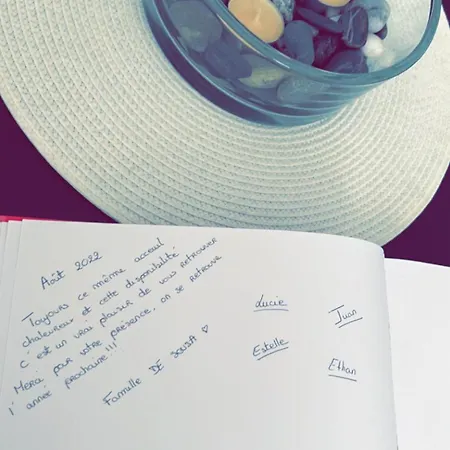 Août 2022
Toujours ce même acceuil
chaleureux et cette disponibilité
C'est un vrai plaisir de vous retrouver
Merci pour votre présence, on se retrouve
l'année prochaine!!!
Famille DE SOUSA ♡
Lucie
Juan
Estelle
Ethan